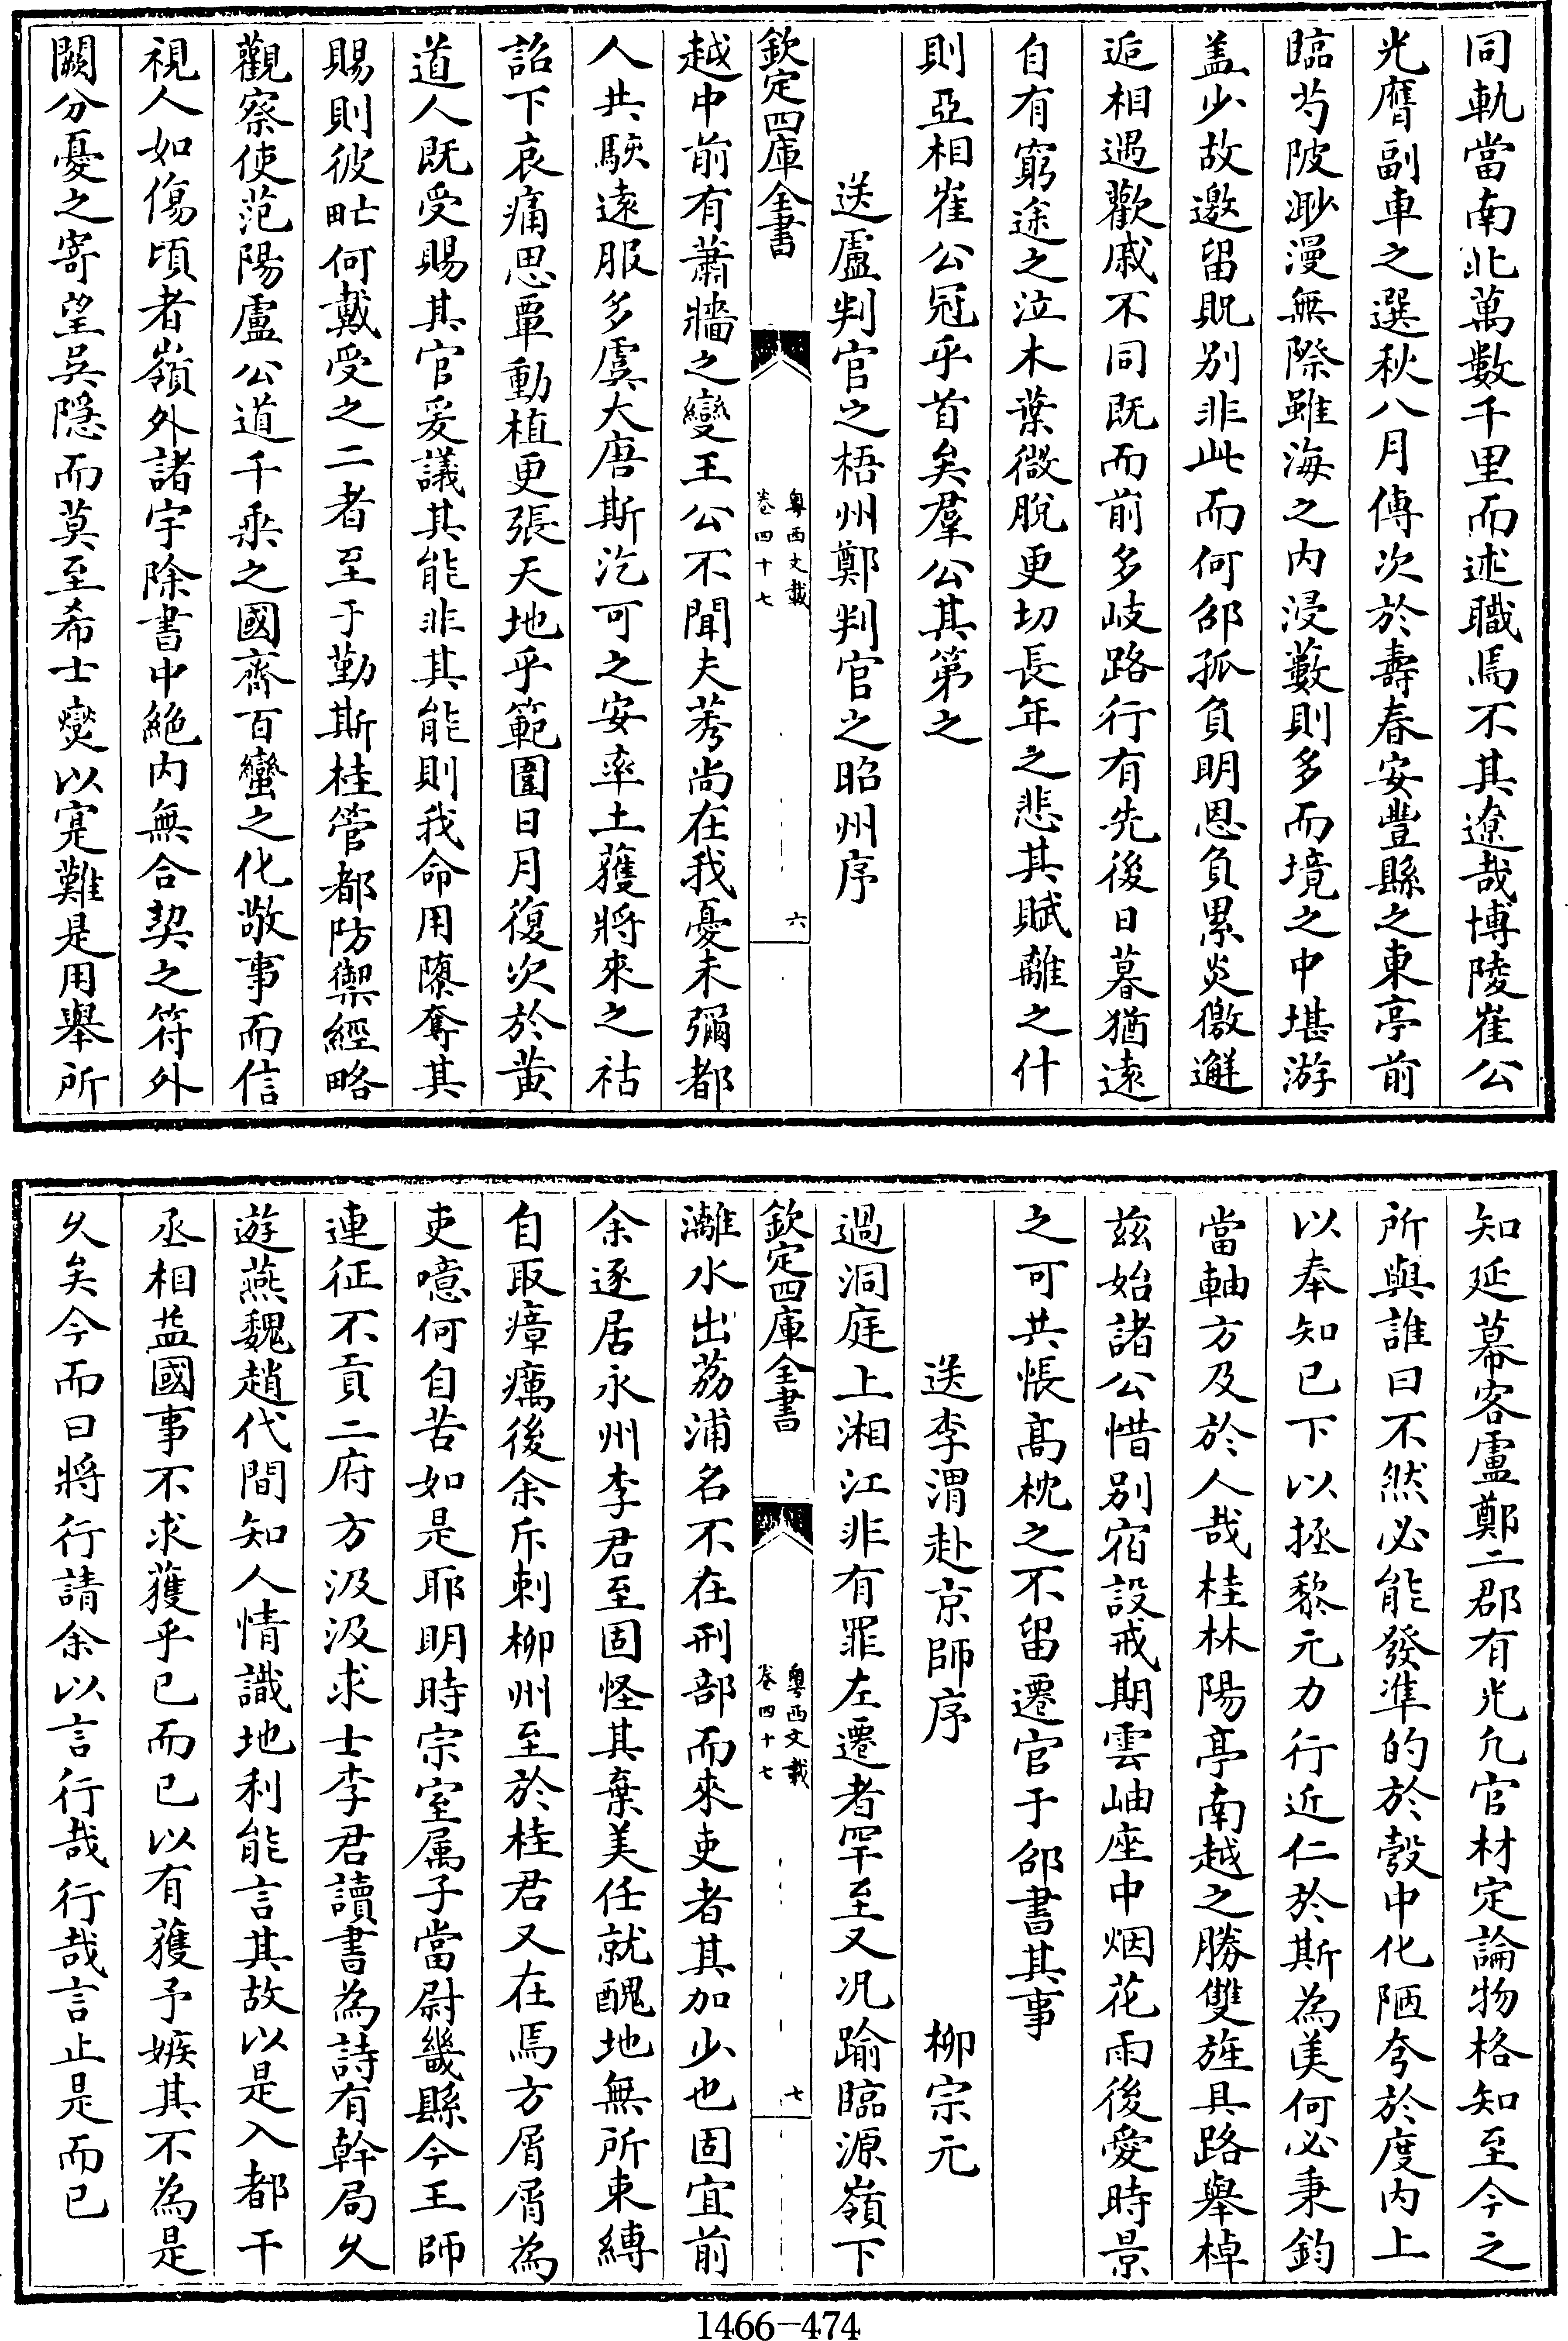 同軌當南北萬數千里而述職焉不其遼哉博陵崔公
光膺副車之選秋八月傳次於壽春安豐縣之東亭前
臨芍陂渺漫無際雖海之内浸藪則多而境之中堪游
盖少故邀留貺别非此而何邵孤負明恩負累炎徼邂
逅相遇歡戚不同既而前多岐路行有先後日暮猶遠
自有窮途之泣木葉微脫更切長年之悲其賦離之什
則亞相崔公冠乎首矣羣公其第之
送盧判官之梧州鄭判官之昭州序
欽定四庫全書
粤西文載
卷四十七
六
越中前有蕭牆之變王公不聞夫莠尚在我憂未彌都
人共駭遠服多虞大唐斯汔可之安率土蒦將來之祜
詔下哀痛思覃動植更張天地乎範圍日月復次於黄
道人既受賜其官爰議其能非其能則我命用隳奪其
賜則彼甿何戴受之二者至于勤斯桂管都防禦經略
觀察使范陽盧公道千乘之國齊百蠻之化敬事而信
視人如傷頃者嶺外諸宇除書中絶内無合契之符外
闕分憂之寄望吳隱而莫至希士燮以寔難是用舉所
知延幕客盧鄭二郡有光凢官材定論物格知至今之
所與誰曰不然必能發凖的於彀中化陋夸於度内上
以奉知已下以拯黎元力行近仁於斯為美何必秉鈞
當軸方及於人哉桂林陽亭南越之勝雙旌具路舉棹
兹始諸公惜别宿設戒期雲岫座中烟花雨後愛時景
之可共悵高枕之不留遷官于邵書其事
送李渭赴京師序　柳宗元
過洞庭上湘江非有罪左遷者罕至又况踰臨源嶺下
欽定四庫全書
粤西文載
卷四十七
七
灕水出荔浦名不在刑部而來吏者其加少也固宜前
余逐居永州李君至固怪其棄美任就醜地無所束縛
自取瘴癘後余斥刺柳州至於桂君又在焉方屑屑為
吏噫何自苦如是耶明時宗室属子當尉畿縣今王師
連征不貢二府方汲汲求士李君讀書為詩有幹局久
遊燕魏趙代間知人情識地利能言其故以是入都干
丞相益國事不求獲乎已而已以有獲予嫉其不為是
久矣今而曰將行請余以言行哉行哉言止是而已
1466-474